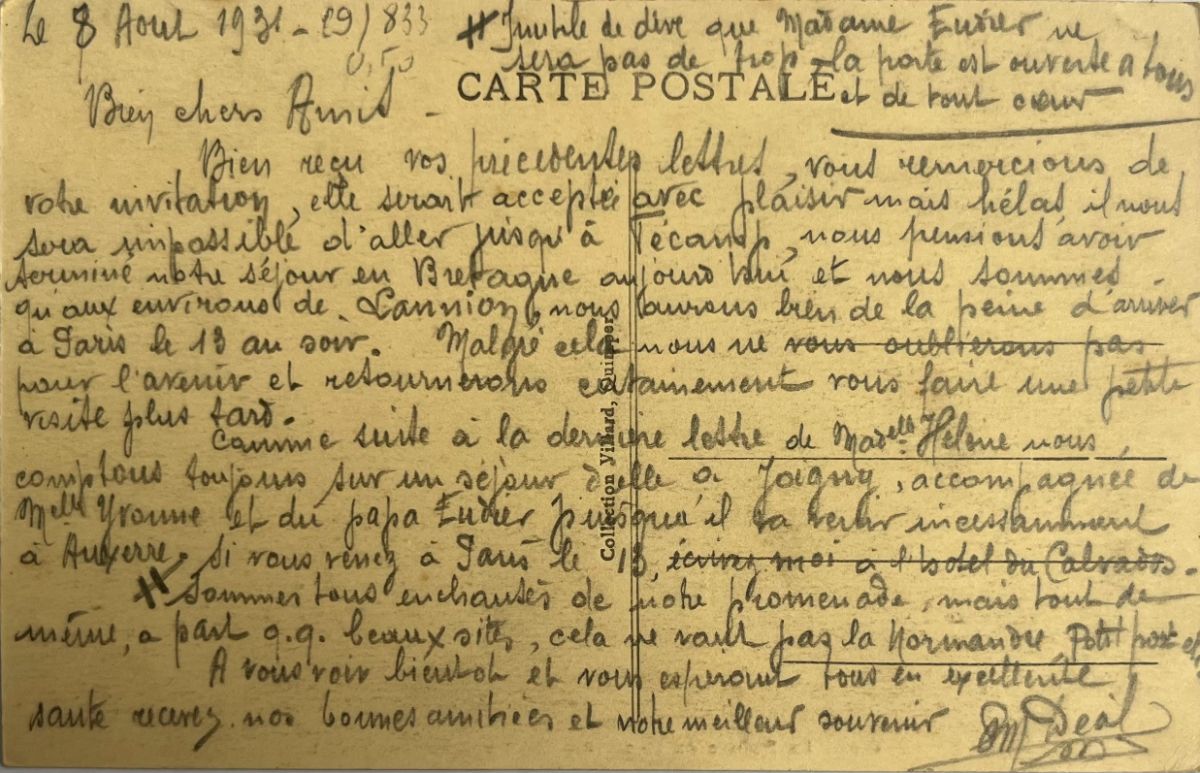 Le 8 Aout 1931 - 19/833
0,50
# Inutile de dire que Madame Eudier ne
sera pas de trop - la porte est ouverte a tous
CARTE POSTALE
et de tout cœur
Bien chers Amis -
Bien reçu vos précedentes lettres, vous remercions de
votre invitation, elle serait acceptée avec plaisir mais hélas il nous
sera impossible d'aller jusqu'à Fécamp, nous pensions avoir
terminé notre séjour en Bretagne aujourd'hui et nous sommes
qu'aux environs de Lannion, nous aurons bien de la peine d'arriver
à Paris le 13 au soir. Malgré cela nous ne vous oublierons pas
pour l'avenir et retournerons certainement vous faire une petite
visite plus tard.
Comme suite à la derniere lettre de Madelle Hélène nous
comptons toujours sur un séjour d'elle a Joigny, accompagnée de
Melle Yvonne et du papa Eudier puisqu'il va venir incessamment
à Auxerre. Si vous venez à Paris le 13, écrivez moi a l'hotel du Calvados.
# Sommes tous enchantés de notre promenade, mais tout de
même, a part q.q. beaux sites, cela ne vaut pas la Normandie
A vous voir bientot et vous esperant tous en excellente
santé recevez nos bonnes amitiées et notre meilleur souvenir
Collection Villard, Quimper